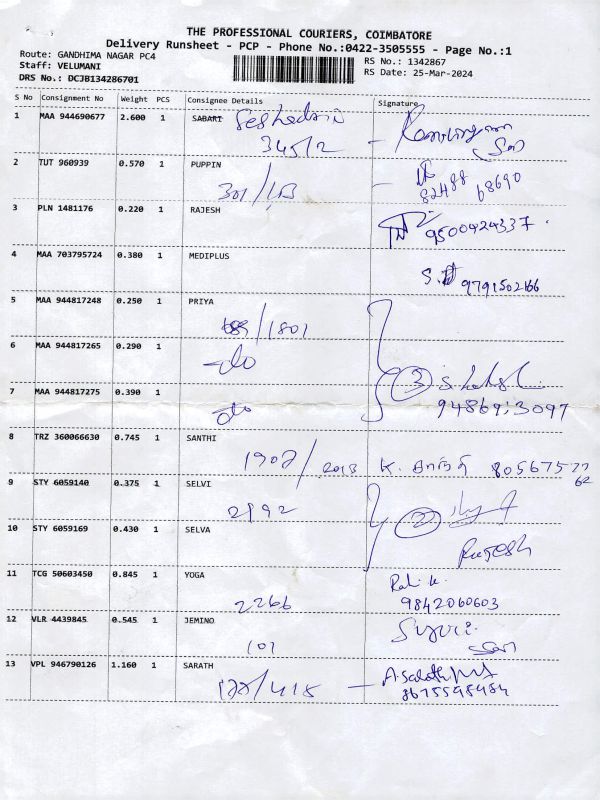 THE PROFESSIONAL COURIERS, COIMBATORE
Delivery Runsheet - PCP - Phone No.:0422-3505555 - Page No.:1
Route: GANDHIMA NAGAR PC4
Staff: VELUMANI
DRS No.: DCJB134286701
RS No.: 1342867
RS Date: 25-Mar-2024
S No Consignment No Weight PCS Consignee Details Signature
1 MAA 944690677 2.600 1 SABARI Seshadri
345/2
2 TUT 960939 0.570 1 PUPPIN
301/1B 82488 68690
3 PLN 1481176 0.220 1 RAJESH
9500424337
4 MAA 703795724 0.380 1 MEDIPLUS
9791502166
5 MAA 944817248 0.250 1 PRIYA
/1801
6 MAA 944817265 0.290 1
-do
7 MAA 944817275 0.390 1 3
do 94869:3097
8 TRZ 360066630 0.745 1 SANTHI
1902/2013 K. சாந்தி 80567577
62
9 STY 6059140 0.375 1 SELVI
2992 2
10 STY 6059169 0.430 1 SELVA
Rajesh
11 TCG 50603450 0.845 1 YOGA
2266 9842060603
12 VLR 4439845 0.545 1 JEMINO
101
13 VPL 946790126 1.160 1 SARATH A.Sarath
/415 8675598484